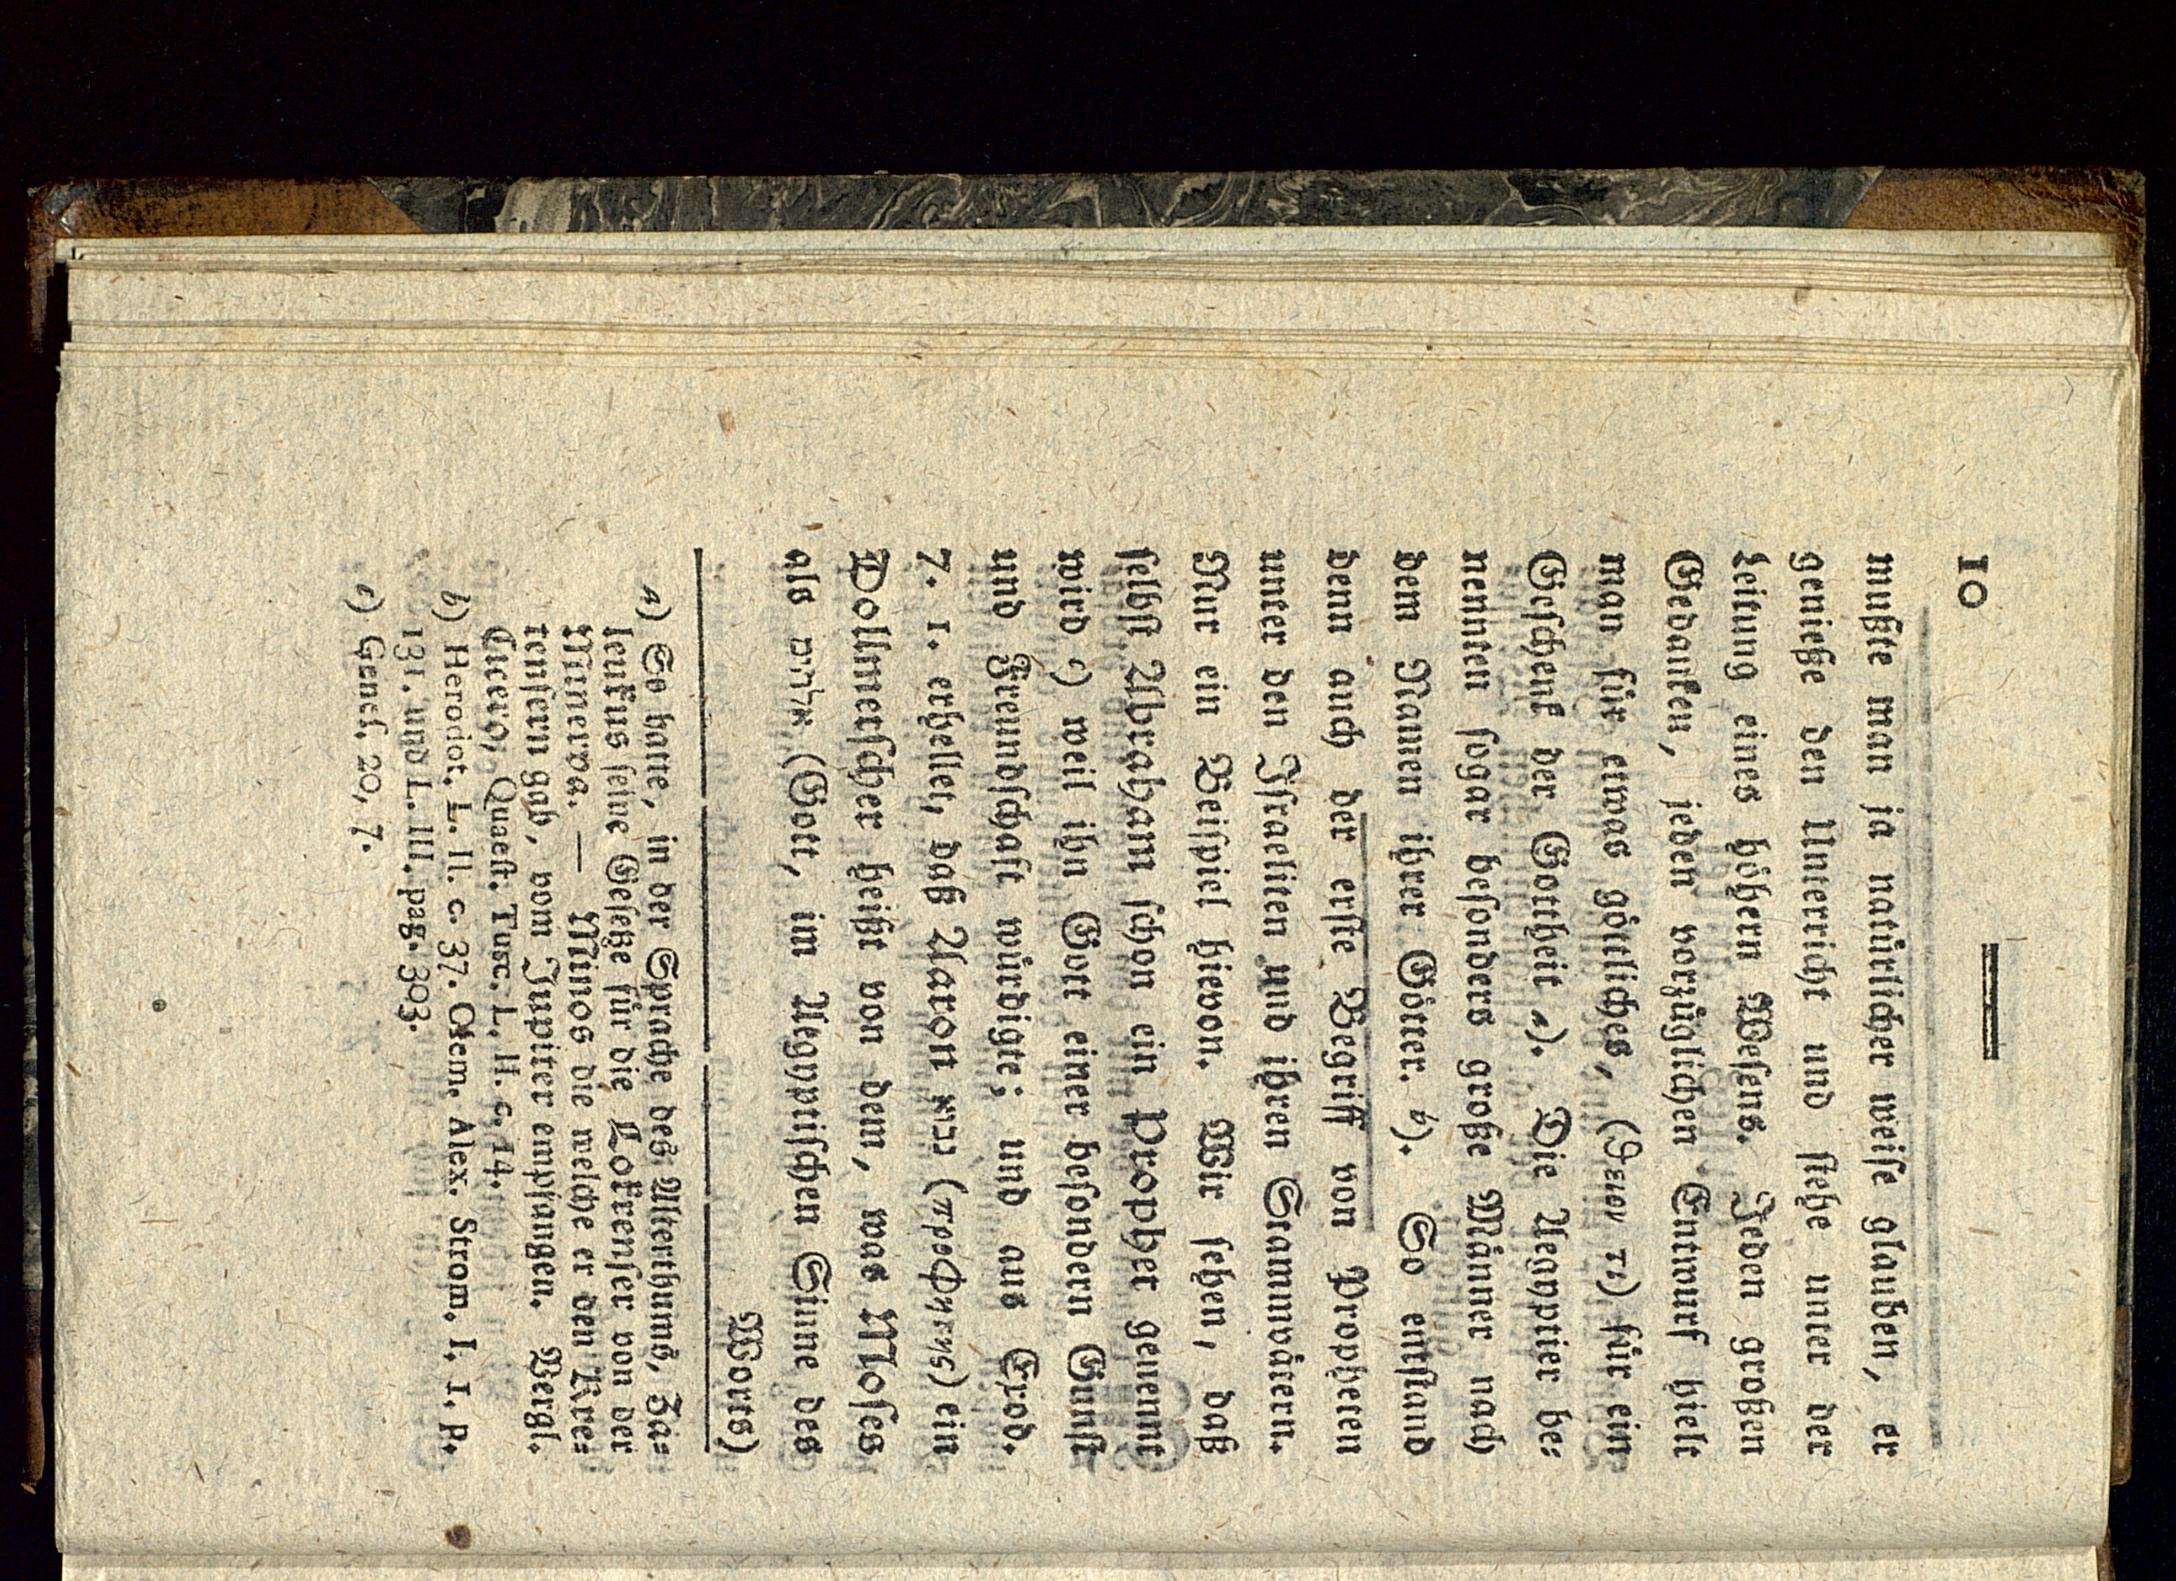 10
mußte man ja natürlicher weise glauben, er
genieße den Unterricht und stehe unter der
Leitung eines höhern Wesens. Jeden großen
Gedanken, jeden vorzüglichen Entwurf hielt
man für etwas göttliches, (ϑειον τι) für ein
Geschenk der Gottheit a). Die Aegyptier be-
nennten sogar besonders große Männer nach
dem Namen ihrer Götter. b). So entstand
denn auch der erste Begriff von Propheten
unter den Israeliten und ihren Stammvätern.
Nur ein Beispiel hievon. Wir sehen, daß
selbst Abraham schon ein Prophet genennt
wird c) weil ihn Gott einer besondern Gunst
und Freundschaft würdigte; und aus Exod.
7. 1. erhellet, daß Aaron נביא (προφητης) ein
Dollmetscher heißt von dem, was Moses
als אלהים (Gott, im Aegyptischen Sinne des
Worts)
a) So hatte, in der Sprache des Alterthums, Za-
leukus seine Gesetze für die Lokrenser von der
Minerva. — Minos die welche er den Kre-
tensern gab, vom Jupiter empfangen. Vergl.
Cicero, Quaest. Tusc. L. II. c. 14.
b) Herodot. L. II. c. 37. Clem. Alex. Strom. I. 1. p.
131. und L. III. pag. 303.
c) Genes. 20, 7.